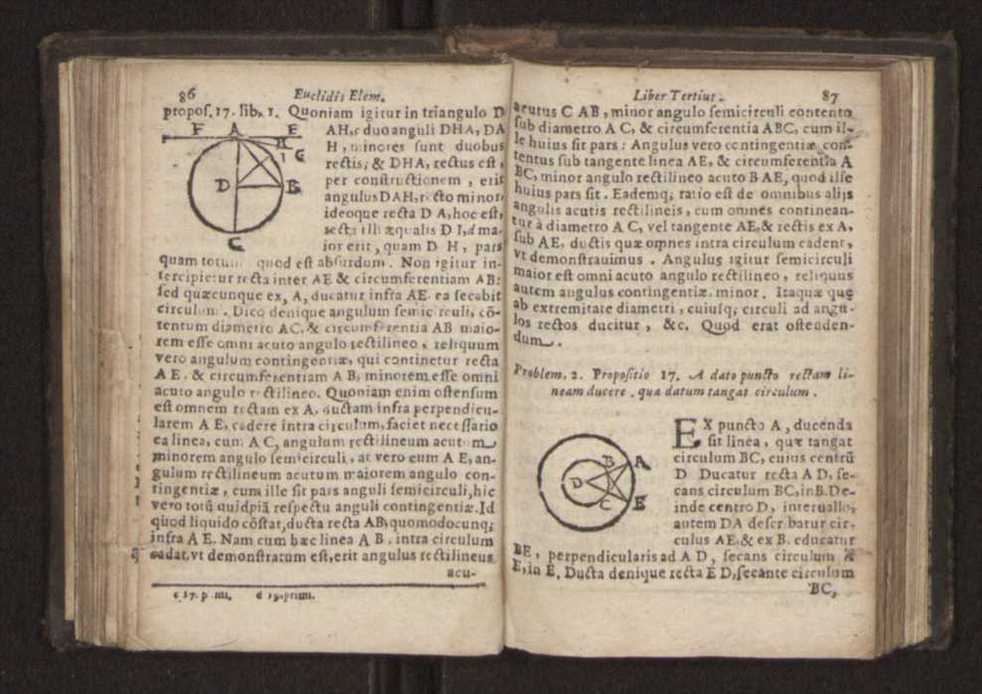 86 Euclidis Elem.
propos. 17. lib. 1. Quoniam igitur in triangulo D
F A E
H
I G
D B
C
AH, c duo anguli DHA, DA
H, minores sunt duobus
rectis; & DHA, rectus est,
per constructionem, erit
angulus DAH, recto minor
ideoque recta D A, hoc est,
recta illi æqualis D I, d ma-
ior erit, quam D H, pars
quam totum quod est absurdum. Non igitur in-
tercipietur recta inter AE & circumferentiam AB:
sed quæcunque ex, A, ducatur infra AE. ea secabit
circulum. Dico denique angulum semicirculi, cō-
tentum diametro AC, & circumferentia AB maio-
rem esse omni acuto angulo rectilineo, reliquum
vero angulum contingentiæ, qui continetur recta
A E, & circumferentiam A B, minorem esse omni
acuto angulo rectilineo. Quoniam enim ostensum
est omnem rectam ex A, ductam infra perpendicu-
larem A E, cadere intra circulum, faciet necessario
ea linea, cum A C, angulum rectilineum acutum
minorem angulo semicirculi, at vero cum A E, an-
gulum rectilineum acutum maiorem angulo con-
tingentiæ, cum ille sit pars anguli semicirculi, hic
vero totū quidpiā respectu anguli contingentiæ. Id
quod liquido cōstat, ducta recta AB, quomodocunq;
infra A E. Nam cum hæc linea A B, intra circulum
cadat, vt demonstratum est, erit angulus rectilineus
acu-
c 17. primi. d 19. primi.
Liber Tertius. 87
acutus C AB, minor angulo semicirculi contento
sub diametro A C, & circumferentia ABC, cum il-
le huius sit pars: Angulus vero contingentiæ con-
tentus sub tangente linea AE, & circumferentia A
BC, minor angulo rectilineo acuto B AE, quod ille
huius pars sit. Eademq; ratio est de omnibus alijs
angulis acutis rectilineis, cum omnes continean-
tur à diametro A C, vel tangente AE, & rectis ex A,
sub AE, ductis quæ omnes intra circulum cadent,
vt demonstrauimus. Angulus igitur semicirculi
maior est omni acuto angulo rectilineo, reliquus
autem angulus contingentiæ, minor. Itaquæ quę
ab extremitate diametri, cuiusq; circuli ad angu-
los rectos ducitur, &c. Quod erat ostenden-
dum.
Problem. 2. Propositio 17. A dato puncto rectam li-
neam ducere, qua datum tangat circulum.
B A
D
C E
EX puncto A, ducenda
sit linea, quæ tangat
circulum BC, cuius centrū
D Ducatur recta A D, se-
cans circulum BC, in B. De-
inde centro D, interuallo,
autem DA describatur cir-
culus AE, & ex B. educatur
BE, perpendicularis ad A D, secans circulum A
E, in E, Ducta denique recta E D, secante circulum
BC,